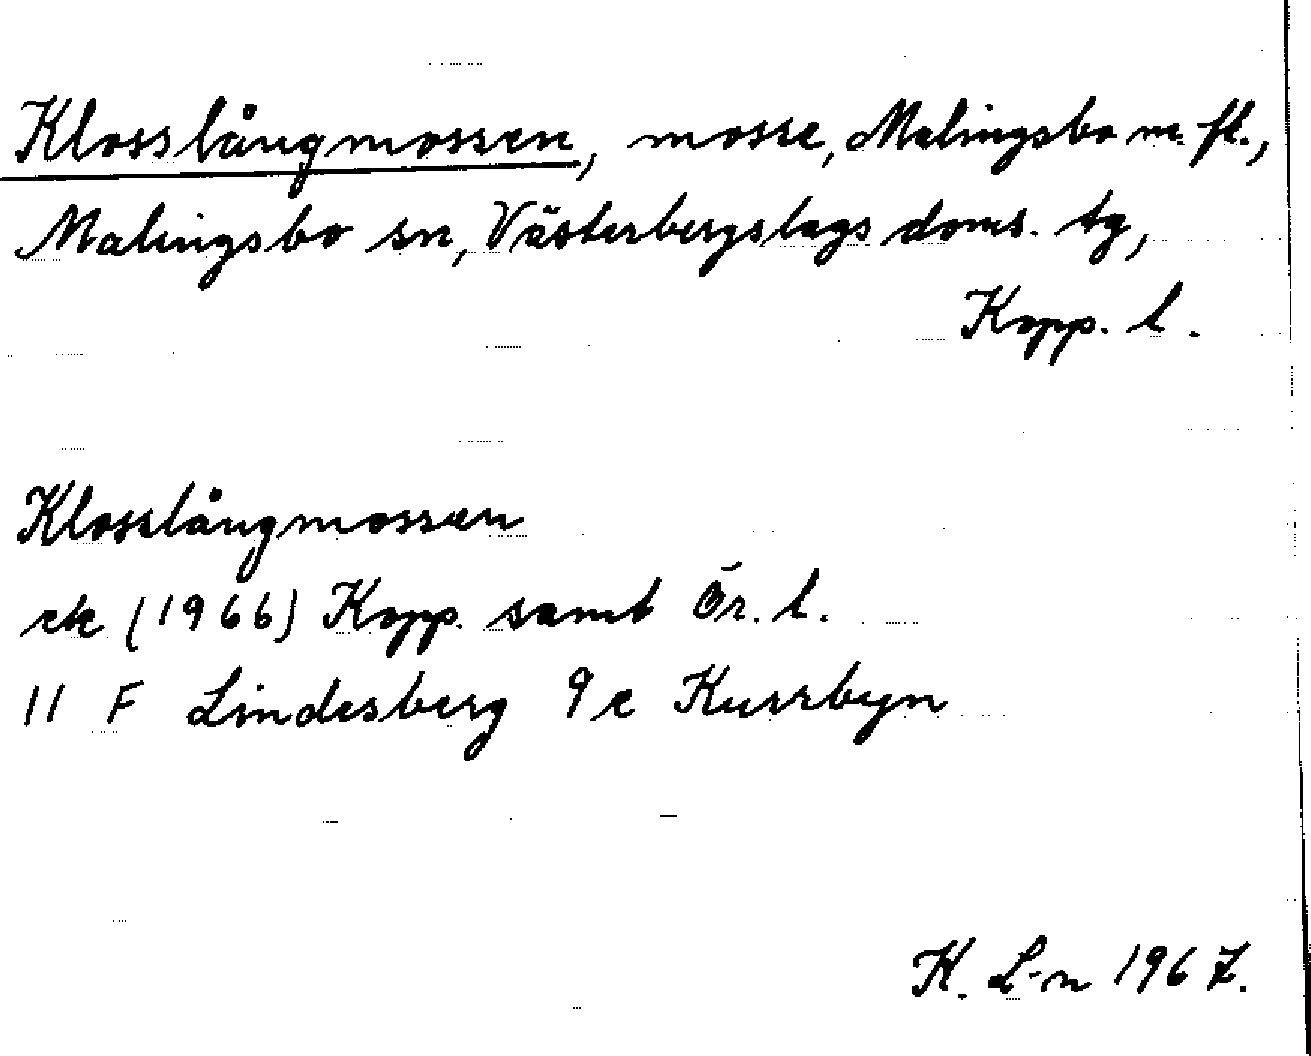 Klosslångmossen, mosse, Malingsbo m. fl.,
Malingsbo sn, Västerbergslags doms. tg,
Kopp. l.
Klosslångmossen
ek (1966) Kopp. samt Ör. l.
11 F Lindesberg 9 e Kurrbyn
K. L-n 1967.